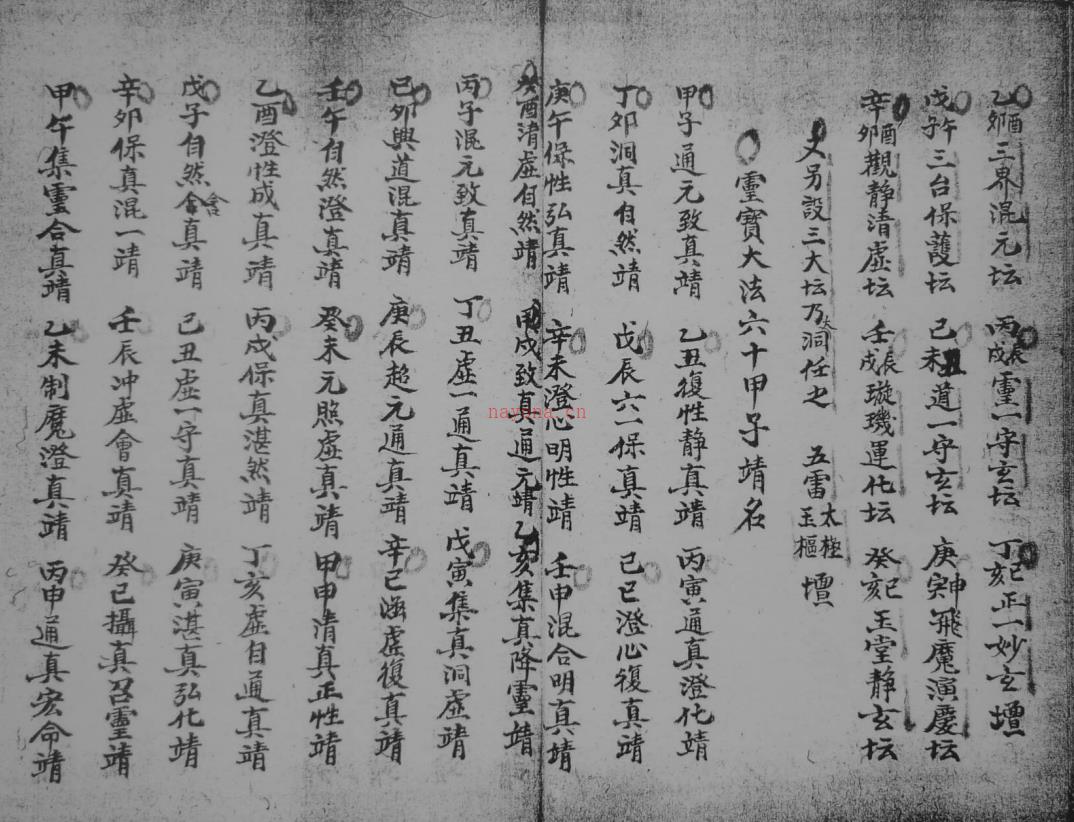 乙卯酉三界混元坛 丙戍辰靈一守玄坛 丁亥巳正一妙玄壇
戊子午三台保護坛 己未丑道一守玄坛 庚寅申飛魔演慶坛
辛卯酉觀静清虚坛 壬戍辰璇璣運化坛 癸亥巳玉堂静玄坛
又另設三大坛乃大洞任之 五雷玉樞太極壇
靈寶大法六十甲子靖名
甲子通元致真靖 乙丑復性静真靖 丙寅通真澄化靖
丁卯洞真自然靖 戊辰六一保真靖 己巳澄心復真靖
庚午保性弘真靖 辛未澄心明性靖 壬申混合明真靖
癸酉清虚自然靖 甲戍致真通元靖 乙亥集真降靈靖
丙子混元致真靖 丁丑虚一通真靖 戊寅集真洞虚靖
己卯與道混真靖 庚辰超元通真靖 辛巳涵虚復真靖
壬午自然澄真靖 癸未元照虚真靖 甲申清真正性靖
乙酉澄性成真靖 丙戍保真湛然靖 丁亥虚白通真靖
戊子自然含真靖 己丑虚一守真靖 庚寅湛真弘化靖
辛卯保真混一靖 壬辰冲虚會真靖 癸巳攝真召靈靖
甲午集靈合真靖 乙未制魔澄真靖 丙申通真宏命靖
nayona.cn